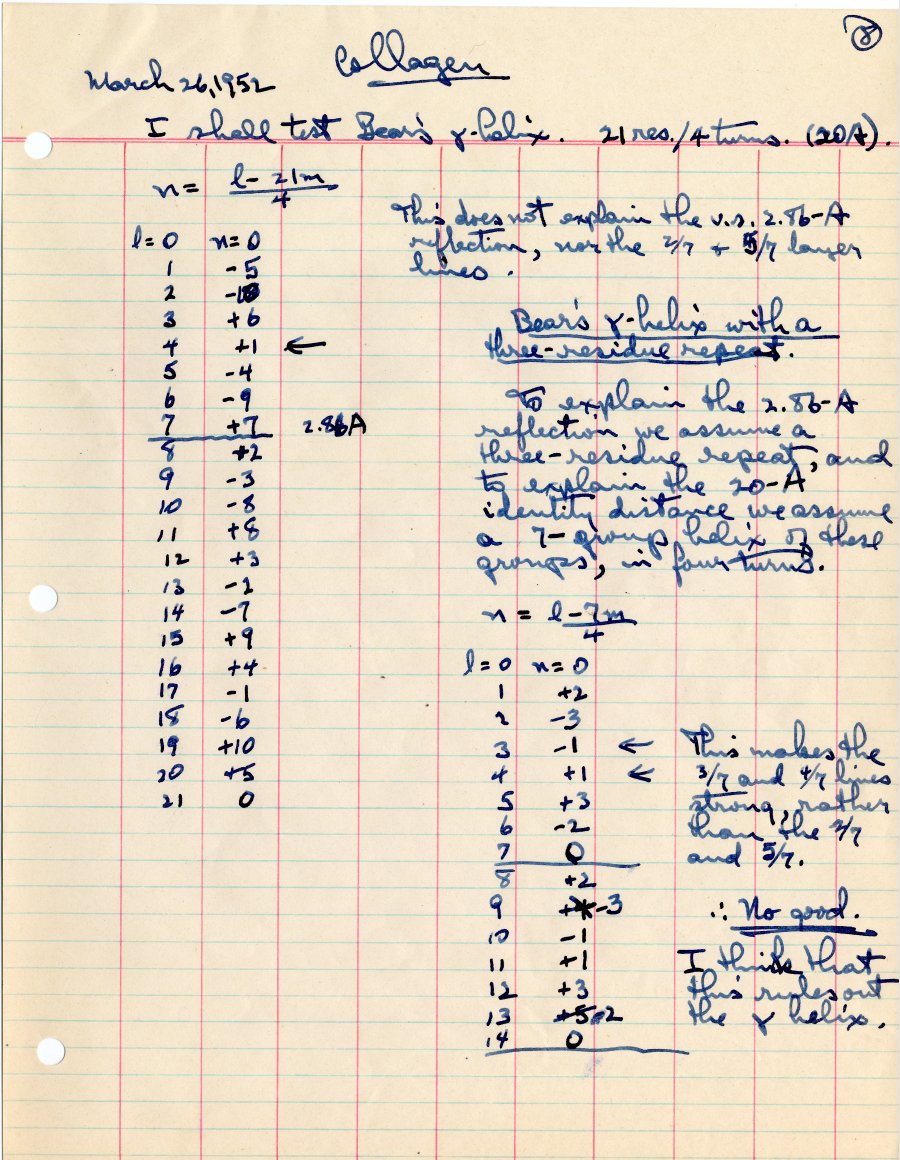 8
Collagen
March 26, 1952
I shall test Bear's γ-helix. 21 res./4 turns. (20A).
n = l - 21m / 4
l = 0 n = 0
1 -5
2 -10
3 +6
4 +1 ←
5 -4
6 -9
7 +7 2.86A
8 +2
9 -3
10 -8
11 +8
12 +3
13 -2
14 -7
15 +9
16 +4
17 -1
18 -6
19 +10
20 +5
21 0
This does not explain the v.s. 2.86-A
reflection, nor the 2/7 + 5/7 layer
lines.
Bear's γ-helix with a
three-residue repeat.
To explain the 2.86-A
reflection we assume a
three-residue repeat, and
to explain the 20-A
identity distance we assume
a 7-group helix of these
groups, in four turns.
n = l - 7m / 4
l = 0 n = 0
1 +2
2 -3
3 -1 ←
4 +1 ←
5 +3
6 -2
7 0
8 +2
9 -3
10 -1
11 +1
12 +3
13 -2
14 0
This makes the
3/7 and 4/7 lines
strong, rather
than the 2/7
and 5/7.
∴ No good.
I think that
this rules out
the γ helix.